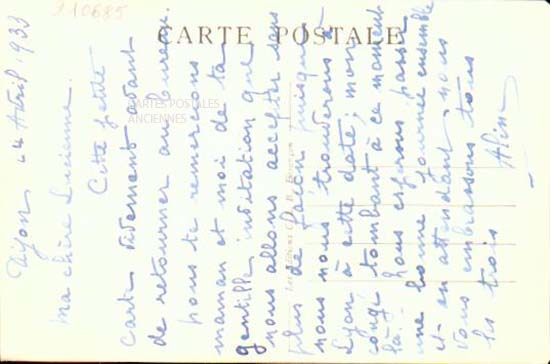 210685
CARTE POSTALE
CARTES POSTALES
ANCIENNES
Dijon le Avril 1933
Ma chère Lucienne.
Cette petite
carte vivement avant
de retourner au bureau.
nous te remercions
maman et moi de ta
gentille invitation que
nous allons accepter sans
plus de façon puisque
nous nous trouverons à
Lyon à cette date; mon
congé tombant à ce moment
là. Nous espérons passer
une bonne journée ensemble
et en attendant, nous
vous embrassons tous
les trois
Aline